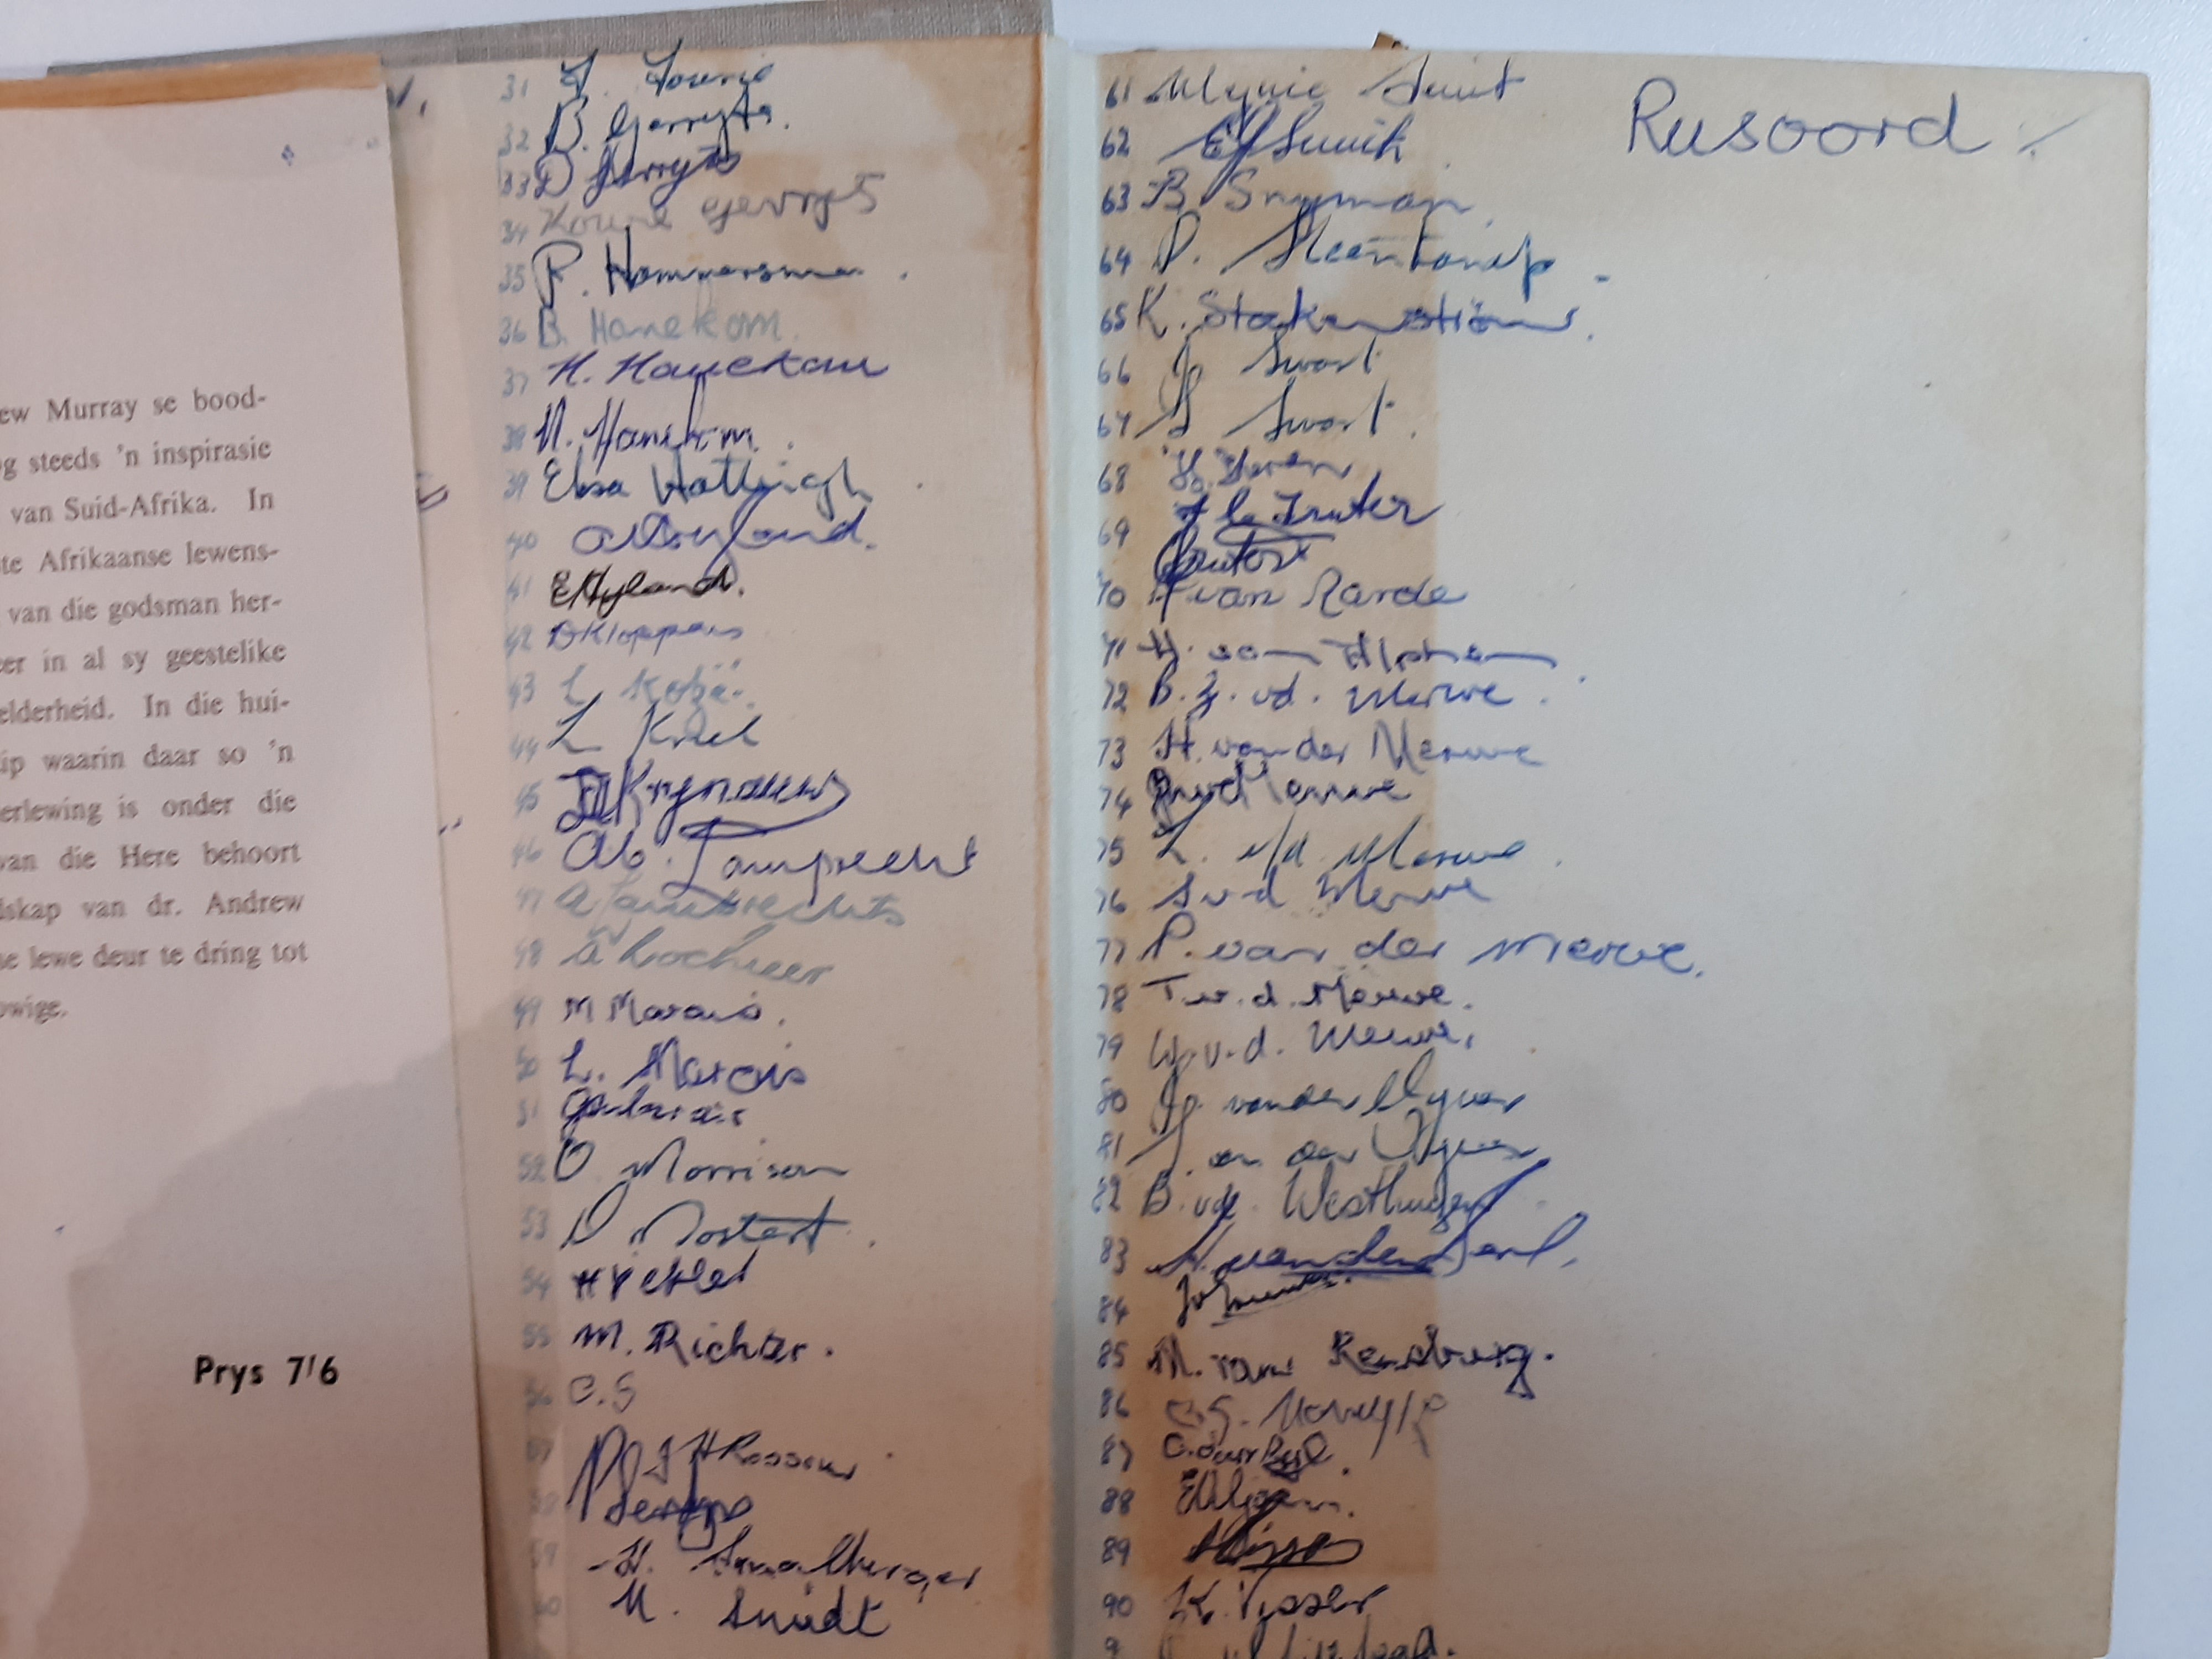 ew Murray se bood-
g steeds 'n inspirasie
van Suid-Afrika. In
te Afrikaanse lewens-
van die godsman her-
er in al sy geestelike
elderheid. In die hui-
ip waarin daar so 'n
erlewing is onder die
van die Here behoort
dskap van dr. Andrew
e lewe deur te dring tot
wige.
Prys 7'6
31 F. Fourie
32 B. Gerryts.
33 D Gerryts
34 Gerryts
35 P. Hammersma.
36 B. Hanekom.
37 H. Hanekom
38 N. Hanekom.
39 Elsa Hattingh.
40
41 E Hyland.
42 D Kloppers
43 L Kotzé.
44 L Kriel
45 Krynauw
46 Ab. Lamprecht
47 A Lambrechts
48 A Lochner
49 M Marais.
50 L. Marais
51
52 O Morrison
53 D Mostert.
54
55 M. Richter.
56 C.S
57 J H Rossouw
58
59 H. Smalberger
60 M. Smidt
61 Mynie Smit
62 Smith
63 B. Snyman.
64 P. Steenkamp.
65 K. Stockenström.
66 J. Swart
67 S Swart.
68
69 Truter
70 van Aarde
71 H. van Alphen
72 B. J. vd. Merwe.
73 H. van der Merwe
74 Merwe
75 L. v/d. Merwe.
76 S v d Merwe
77 P. van der Merwe.
78 T. v. d. Merwe.
79 W. v. d. Merwe.
80 van der Vyver
81 J. van der Vyver
82 B. vd. Westhuizen
83
84
85 M. van Rensburg.
86 C.S.
87
88
89 Visser
90 Visser
9
Rusoord.